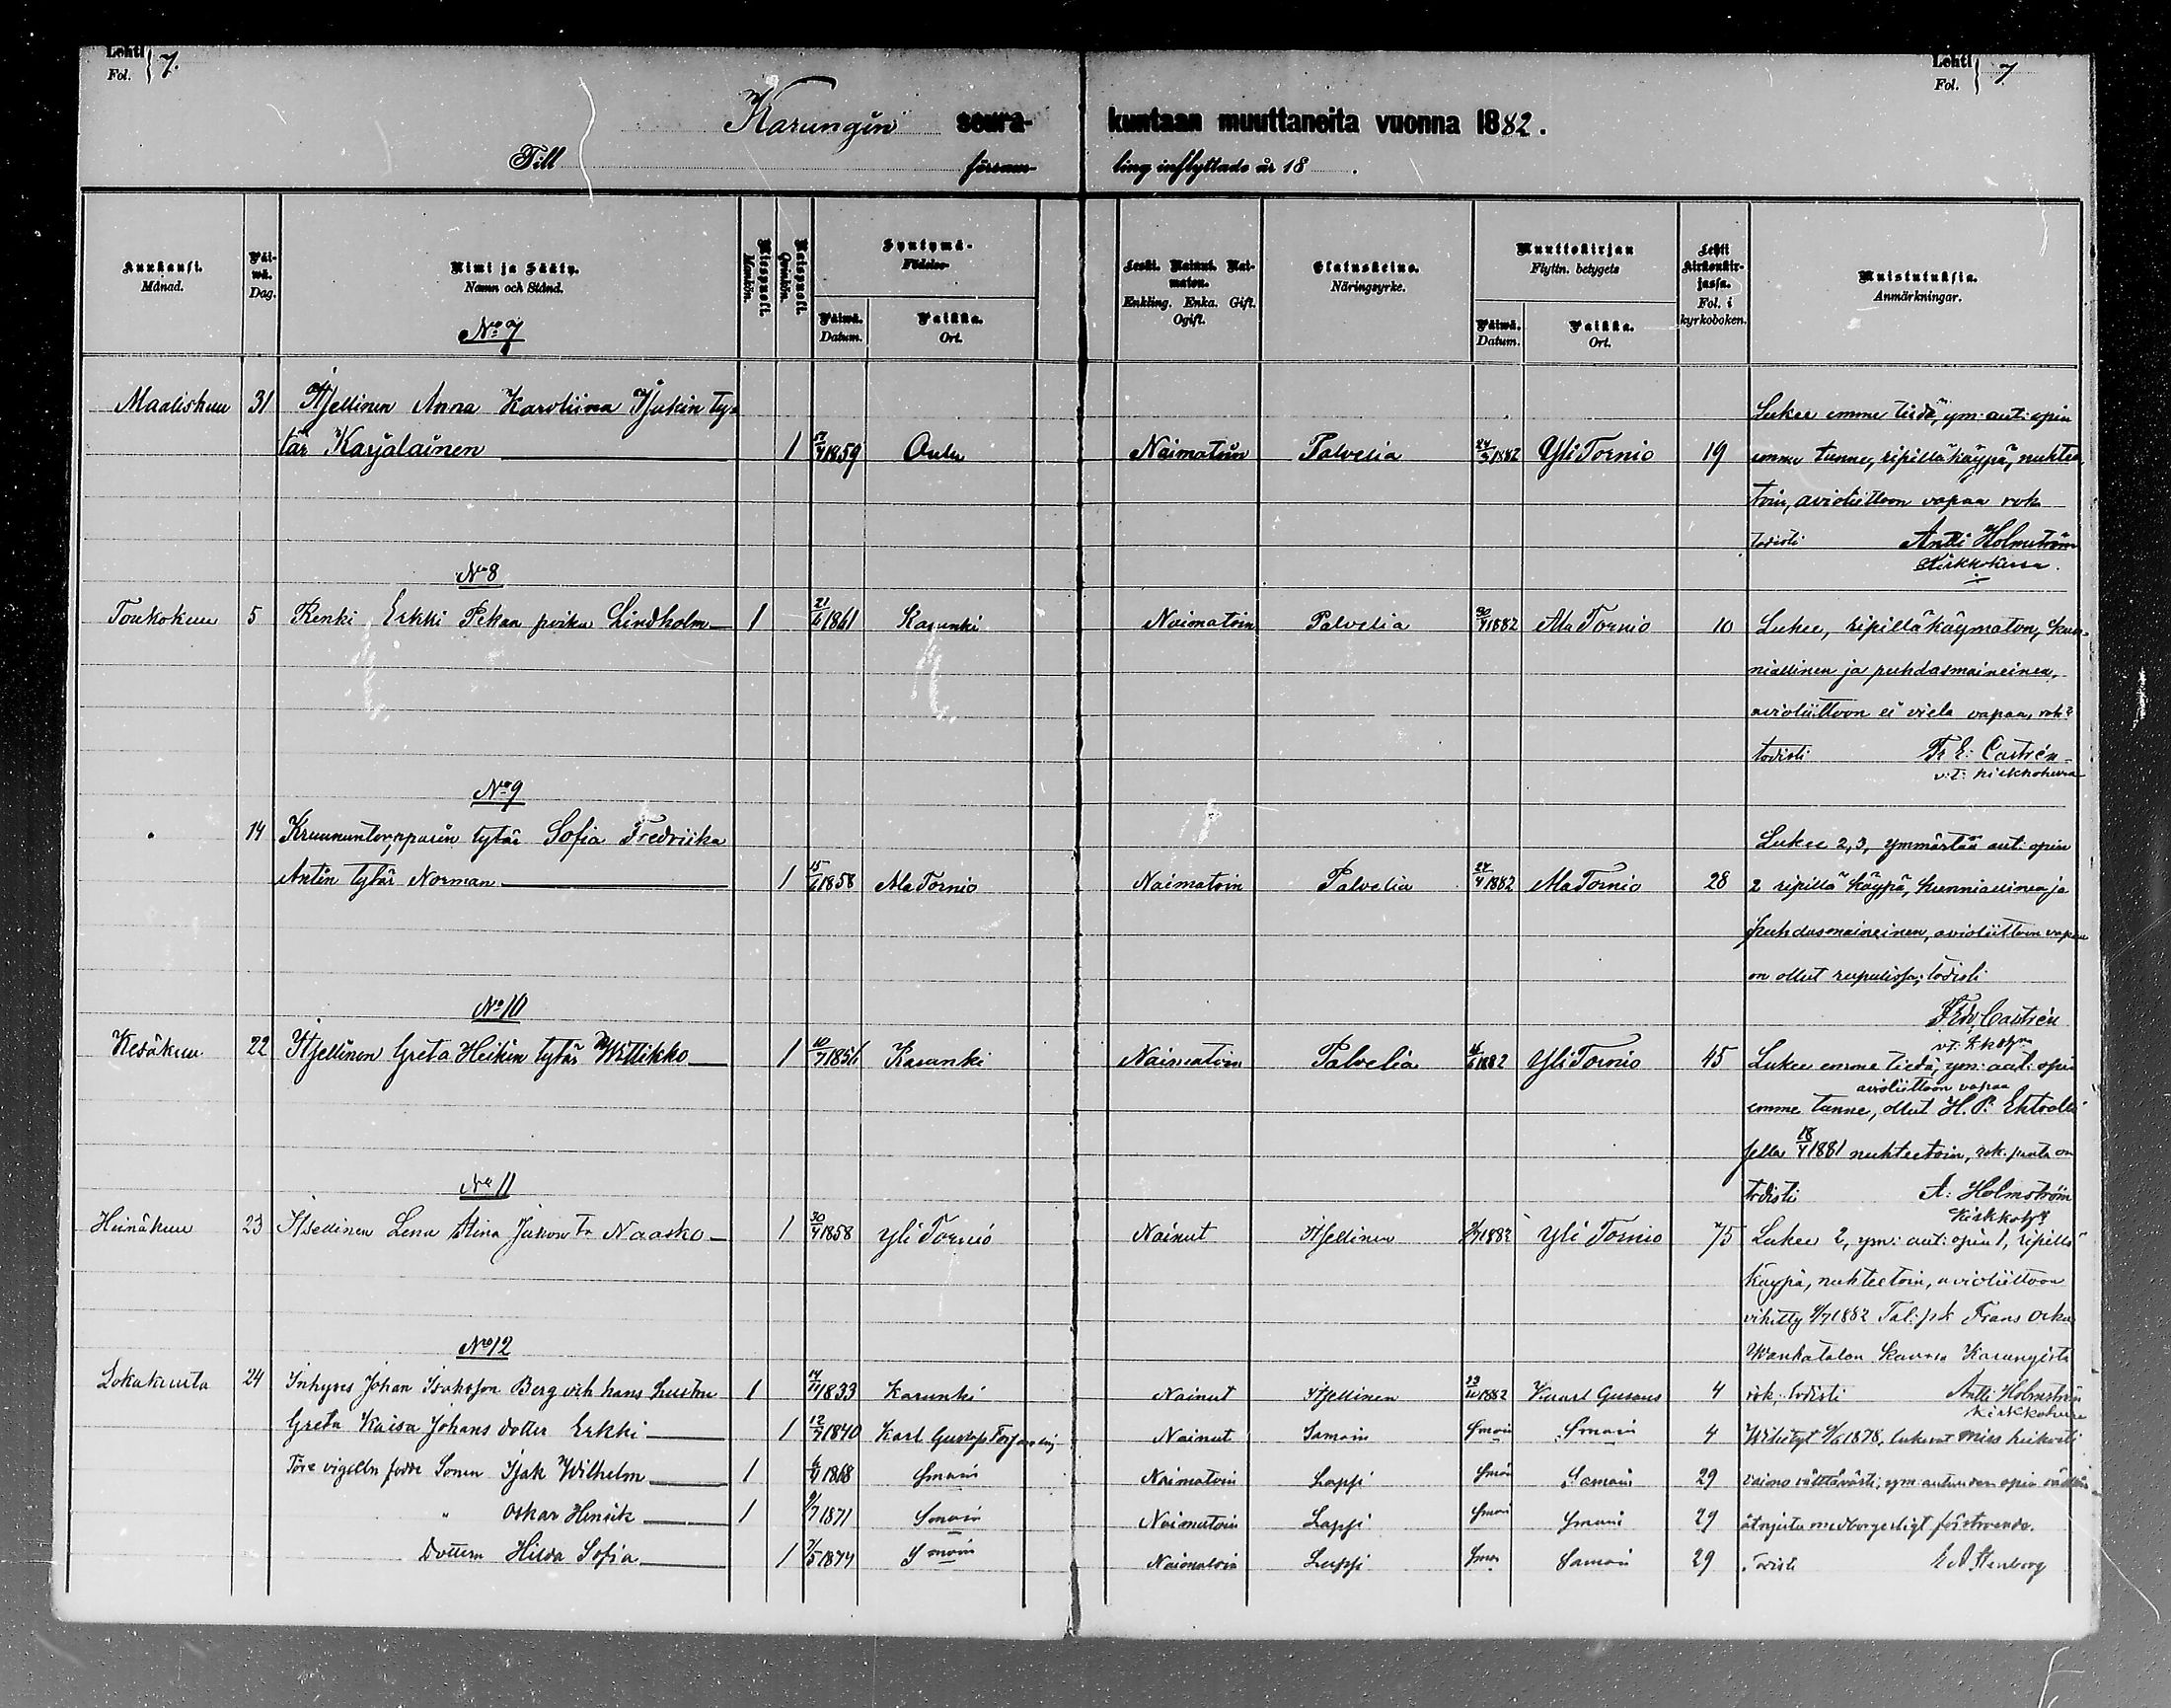 Lehti Fol. 7.
Lehti Fol. 7
Karungin seura- kuntaan muuttaneita vuonna 1882.
Till försam- ling inflyttade år 18 .
Kuukausi. Månad.
Päi-wä. Dag.
Nimi ja Sääty. Namn och Stånd.
Miespuoli. Mankön.
Naispuoli. Qvinkön.
Syntymä- Födelse-
Päiwä. Datum.
Paikka. Ort.
Leski. Nainut. Nai-maton. Enkling. Enka. Gift. Ogift.
Elatuskeino. Näringsyrke.
Muuttokirjan Flyttn. betygets
Päiwä. Datum.
Paikka. Ort.
Lehti kirkonkir-jassa. Fol. i kyrkoboken.
Muistutuksia. Anmärkningar.
No 7
Maaliskuu 31 Itsellinen Anna Karoliina Isakin ty- Lukee emme tiedä, ym: aut: opin
tär Karjalainen 1 1859 Oulu Naimatoin Palvelia 1882 Yli Tornio 19 emme tunne, ripillä käypä, nuhtee
toin, avioliittoon vapaa rok
todisti Antti Holmström
Kirkkoherra.
No 8
Toukokuu 5 Renki Erkki Pekan poika Lindholm 1 21/6 1861 Karunki Naimatoin Palvelia 30/4 1882 Ala Tornio 10 Lukee, ripillä käymaton, kun-
niallinen ja puhdasmaineinen,
avioliittoon ei vielä vapaa, rok:
todisti Fr E. Castrén
v:t: kirkkoherra
No 9
" 14 Kruununtorpparin tytär Sofia Fredriika Lukee 2,3, ymmärtää aut: opin
Antin tytär Norman 1 15/6 1858 Ala Tornio Naimatoin Palvelia 27/4 1882 Ala Tornio 28 2 ripillä käypä, kunniallinen ja
puhdasmaineinen, avioliittoon vapaa
on ollut ; todisti
Castrén
No 10
Kesäkuu 22 Itsellinen Greta Heikin tytär Wittikko 1 10/7 1856 Karunki Naimatoin Palvelia 1882 Yli Tornio 45 Lukee emme tiedä, ym: aut: opin
avioliittoon vapaa
emme tunne, ollut H. P. Ehtoolli
sella 18/4 1881 nuhteetoin, rok. on
todisti A: Holmström
Kirkkoh:
No 11
Heinäkuu 23 Itsellinen Lena Stina Jakon tr Naasko 1 30/4 1858 Yli Tornio Nainut Itsellinen 1882 Yli Tornio 75 Lukee 2, ym: aut: opin 1, ripillä
käypä, nuhteetoin, avioliittoon
vihitty 1882 Tal: p:k Frans Oska
Wanhatalon kanssa Karungista
No 12
Lokakuuta 24 Inhyses Johan Isaksson Berg och hans hustru 1 1833 Karunki Nainut Itsellinen 1882 4 rok: todisti Antti Holmström
Kirkkoherra
Greta Kaisa Johans dotter Erkki 1 12/7 1840 Karl Gustafs Nainut Samoin Smoin Smoin 4 Wihityt 1878, lukevat
Före vigseln födde Sonen Isak Wilhelm 1 1868 Smoin Naimatoin Lappi Smoin Samoin 29 vaimo välttävästi, ym:
" Oskar Henrik 1 9/7 1871 Smoin Naimatoin Lappi Smoin Smoin 29 åtnjuta medborgerligt förtroende.
Dottern Hilda Sofia 1 1874 Smoin Naimatoin Lappi Smoin Samoin 29 Todisti Stenborg